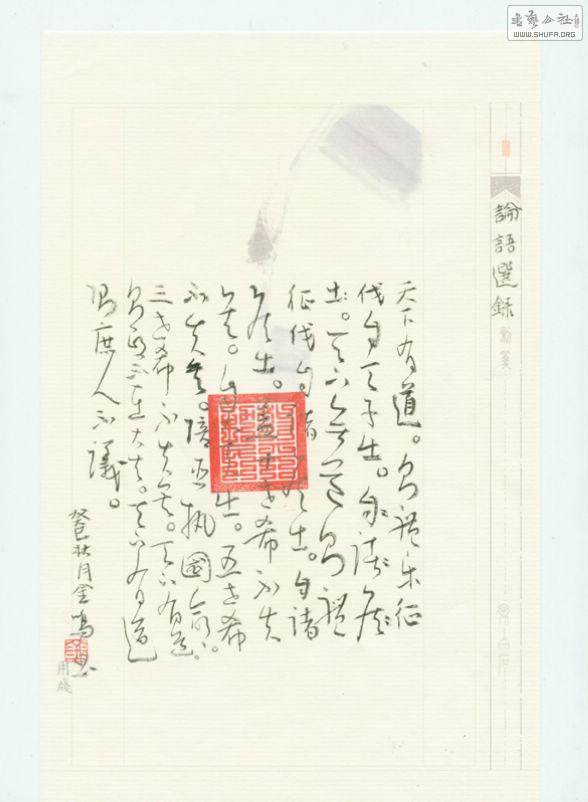 書藝公社
WWW.SHUFA.ORG
論語選錄
天下有道。則禮樂征
伐自天子出。自諸侯
出。天下無道則禮
征伐自諸侯出。自諸
侯出。蓋十世希不失
矣。自大夫出。五世希
不失矣。陪臣執國命。
三世希不失矣。天下有道。
則政不在大夫。天下有道
則庶人不議。
癸巳秋月金鳴書